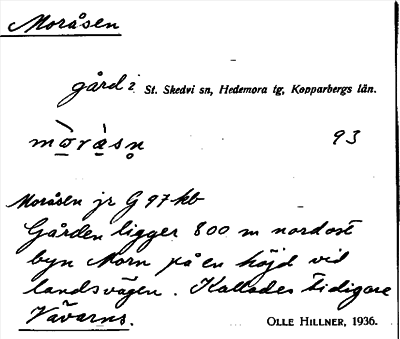 Moråsen
gård i St. Skedvi sn, Hedemora tg, Kopparbergs län.
mò̱rà̱sn̥ 93
Moråsen jr G 97 kb
Gården ligger 800 m nordost
byn Morn på en höjd vid
landsvägen. Kallades tidigare
Vävarns.
OLLE HILLNER, 1936.